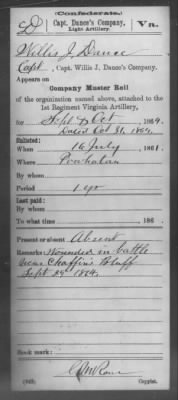 (Confederate.)
D
Capt. Dance's Company,
Light Artillery.
Va.
Willis J. Dance
Capt., Capt. Willis J. Dance's Company.
Appears on
Company Muster Roll
of the organization named above, attached to the
1st Regiment Virginia Artillery,
for Sept & Oct, 1864.
Dated Oct 31, 1864.
Enlisted:
When 16 July, 1861.
Where Powhatan
Period 1 yr
Last paid:
By whom
To what time , 186 .
Present or absent Absent
Remarks: Wounded in battle
near Chaffin's Bluff
Sept 29 1864.
Book mark:
Copyist.